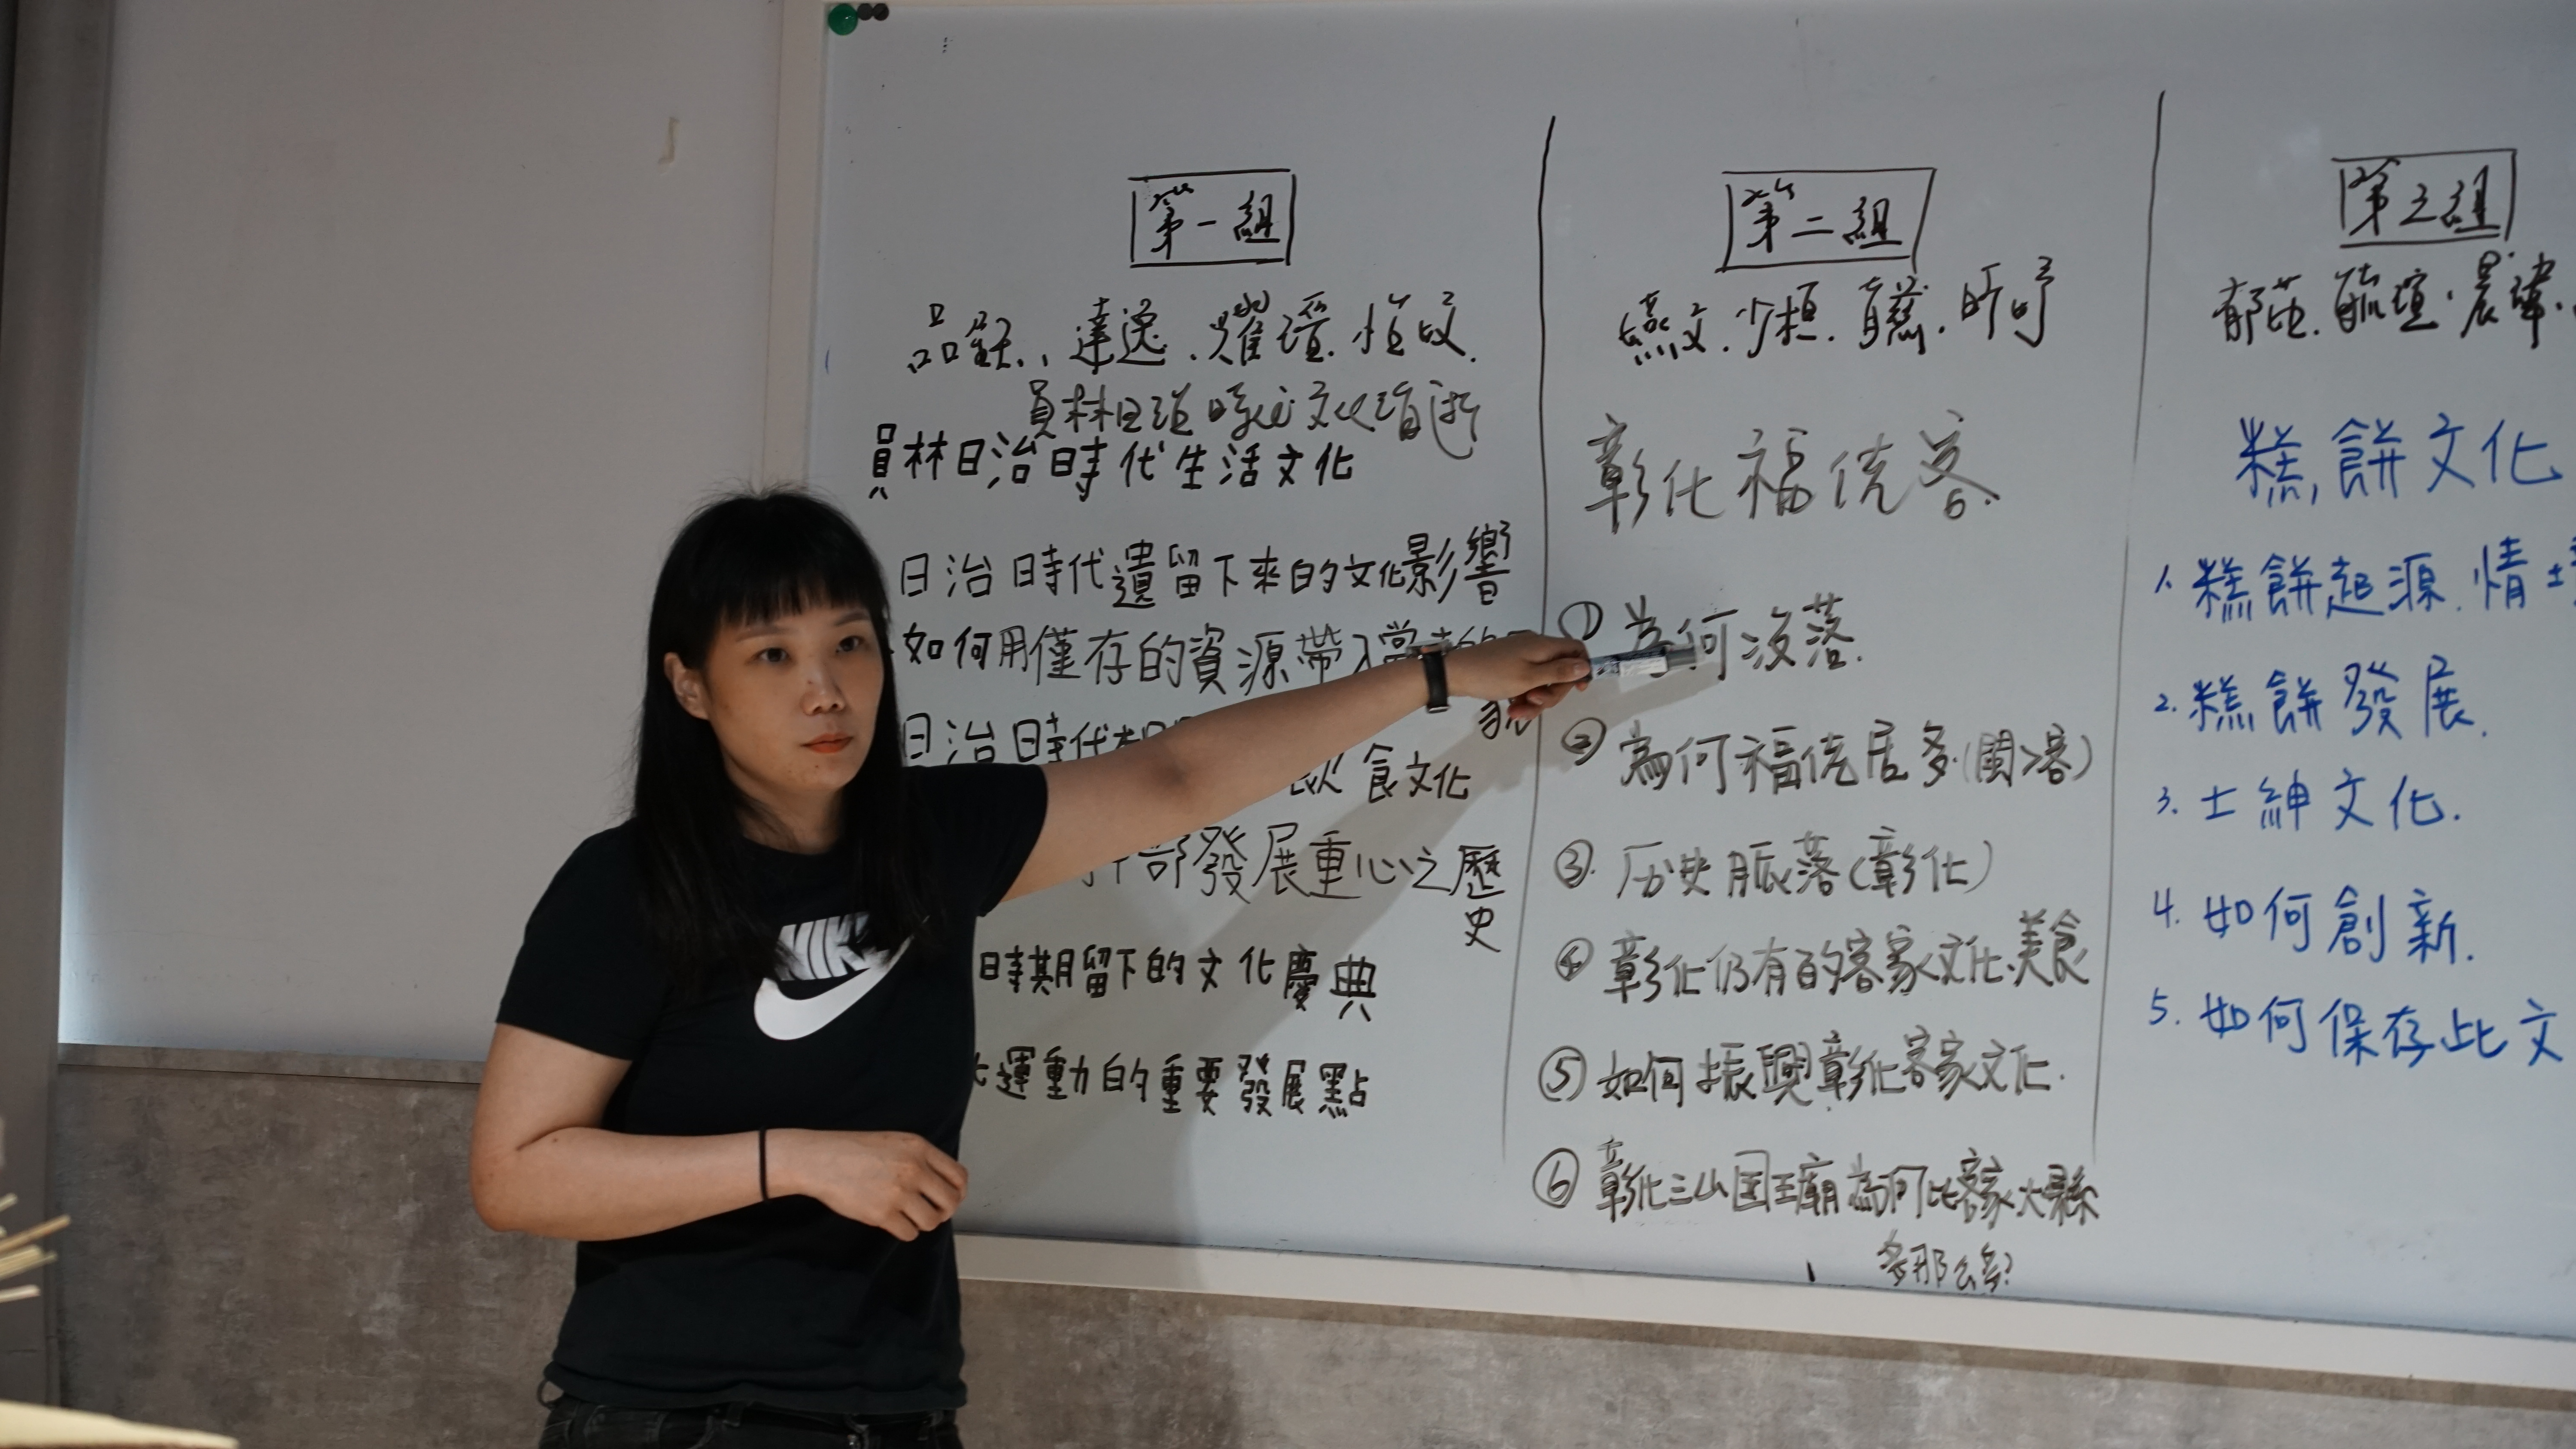 第一組
品、達逸.
員林日治時代文化
員林日治時代生活文化
日治時代遺留下來的文化影響
如何用僅存的資源帶入當
日治時代
飲食文化
部發展重心之歷史
時期留下的文化慶典
化運動的重要發展點
NIKE
第二組
燕文.少桓.育慈.昕妤
彰化福佬客.
① 為何沒落.
② 為何福佬居多(閩>客)
③. 历史脈落(彰化)
④ 彰化仍有的客家文化.美食
⑤ 如何振興彰化客家文化.
⑥ 彰化三山国王廟為何比客家大縣
多那么多?
第三組
糕餅文化
1. 糕餅起源.情
2. 糕餅發展.
3. 士紳文化.
4. 如何創新.
5. 如何保存此文